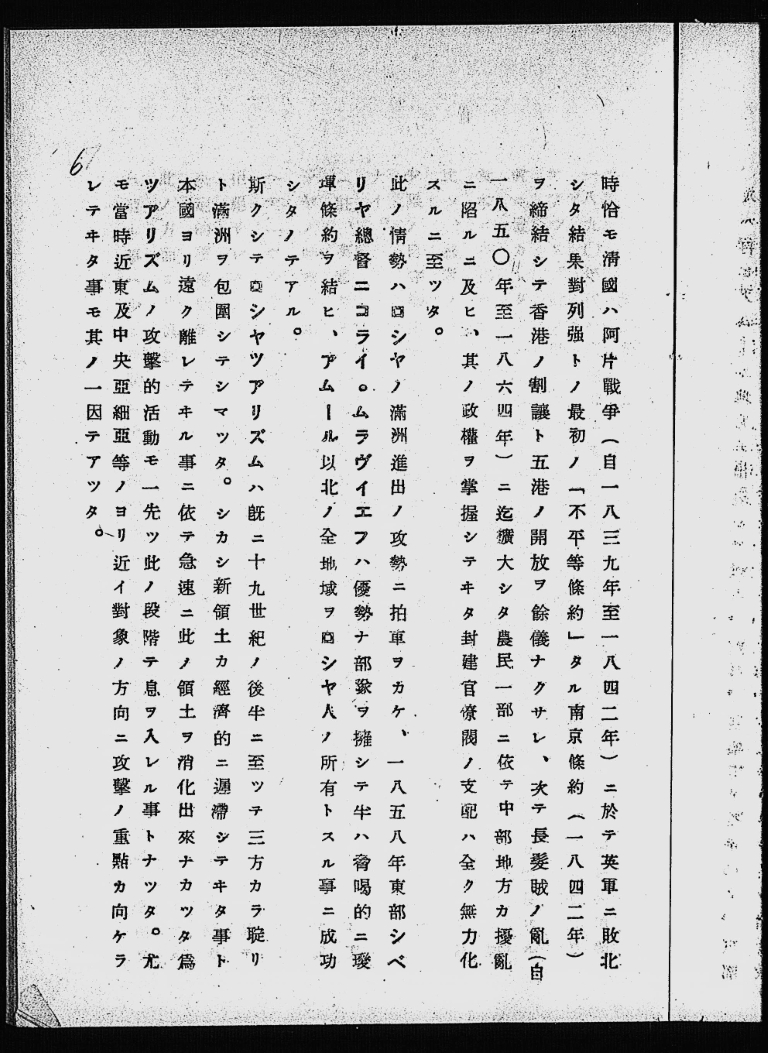 時恰モ清國ハ阿片戰爭(自一八三九年至一八四二年)ニ於テ英軍ニ敗北
シタ結果對列强トノ最初ノ「不平等條約」タル南京條約(一八四二年)
ヲ締結シテ香港ノ割讓ト五港ノ開放ヲ餘儀ナクサレ、次テ長髮賊ノ亂(自
一八五〇年至一八六四年)ニ迄擴大シタ農民一部ニ依テ中部地方カ擾亂
ニ陷ルニ及ヒ、其ノ政權ヲ掌握シテヰタ封建官僚閥ノ支配ハ全ク無力化
スルニ至ツタ。
此ノ情勢ハロシヤノ滿洲進出ノ攻勢ニ拍車ヲカケ、一八五八年東部シベ
リヤ總督ニコライ。ムラヴイエフハ優勢ナ部隊ヲ擁シテ半ハ脅喝的ニ璦
琿條約ヲ結ヒ、アムール以北ノ全地域ヲロシヤ人ノ所有トスル事ニ成功
シタノテアル。
斯クシテロシヤツアリズムハ旣ニ十九世紀ノ後半ニ至ツテ三方カラ聢リ
ト滿洲ヲ包圍シテシマツタ。シカシ新領土カ經濟的ニ遲滯シテヰタ事ト
本國ヨリ遠ク離レテヰル事ニ依テ急速ニ此ノ領土ヲ消化出來ナカツタ爲
ツアリズムノ攻擊的活動モ一先ツ此ノ段階テ息ヲ入レル事トナツタ。尤
モ當時近東及中央亞細亞等ノヨリ近イ對象ノ方向ニ攻擊ノ重點カ向ケラ
レテヰタ事モ其ノ一因テアツタ。